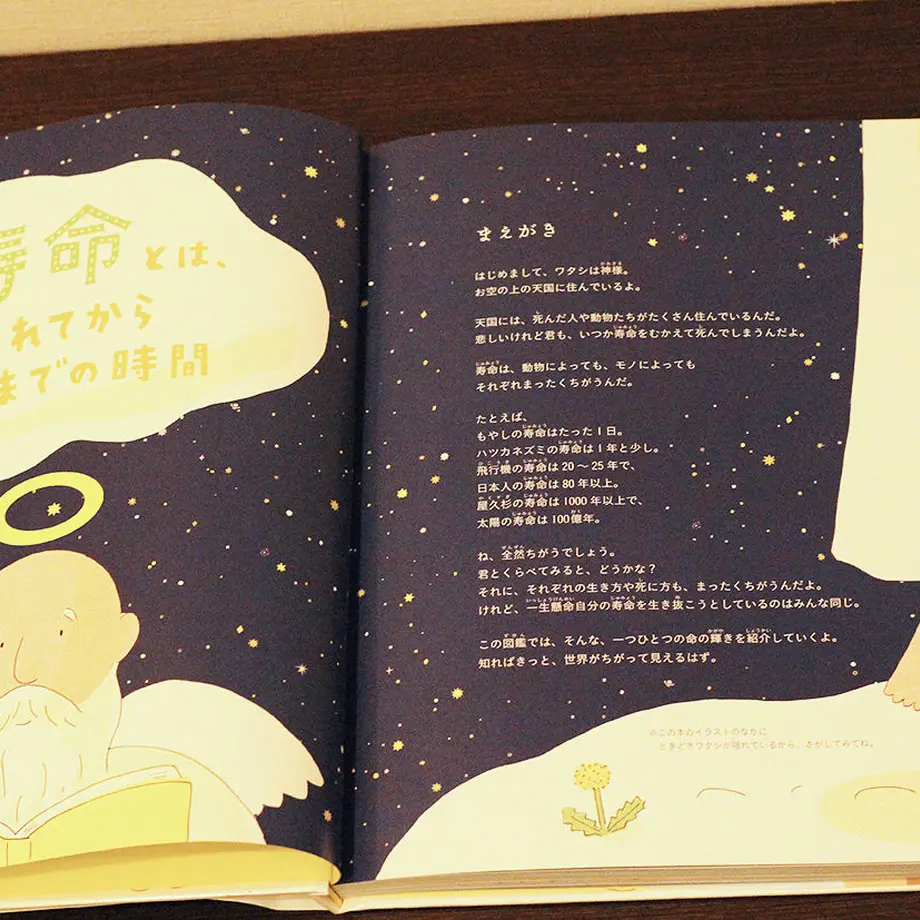 寿命とは、
れてから
までの時間
まえがき
はじめまして、ワタシは神様。
お空の上の天国に住んでいるよ。
天国には、死んだ人や動物たちがたくさん住んでいるんだ。
悲しいけれど君も、いつか寿命をむかえて死んでしまうんだよ。
寿命は、動物によっても、モノによっても
それぞれまったくちがうんだ。
たとえば、
もやしの寿命はたった1日。
ハツカネズミの寿命は1年と少し。
飛行機の寿命は20〜25年で、
日本人の寿命は80年以上。
屋久杉の寿命は1000年以上で、
太陽の寿命は100億年。
ね、全然ちがうでしょう。
君とくらべてみると、どうかな?
それに、それぞれの生き方や死に方も、まったくちがうんだよ。
けれど、一生懸命自分の寿命を生き抜こうとしているのはみんな同じ。
この図鑑では、そんな、一つひとつの命の輝きを紹介していくよ。
知ればきっと、世界がちがって見えるはず。
※この本のイラストのなかに
ときどきワタシが隠れているから、さがしてみてね。